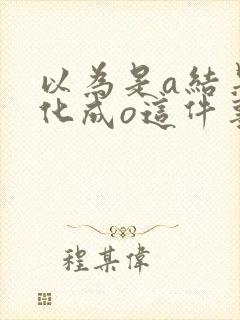 以為是a結
化成o這件
程某偉